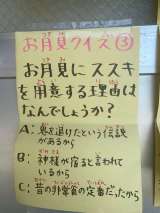 お月見クイズ③
お月見にススキ
を用意する理由は
なんでしょうか?
A:鬼を退けたという伝説
があるから
B:神様が宿ると言われて
いるから
C:昔の非常食の定番だったから